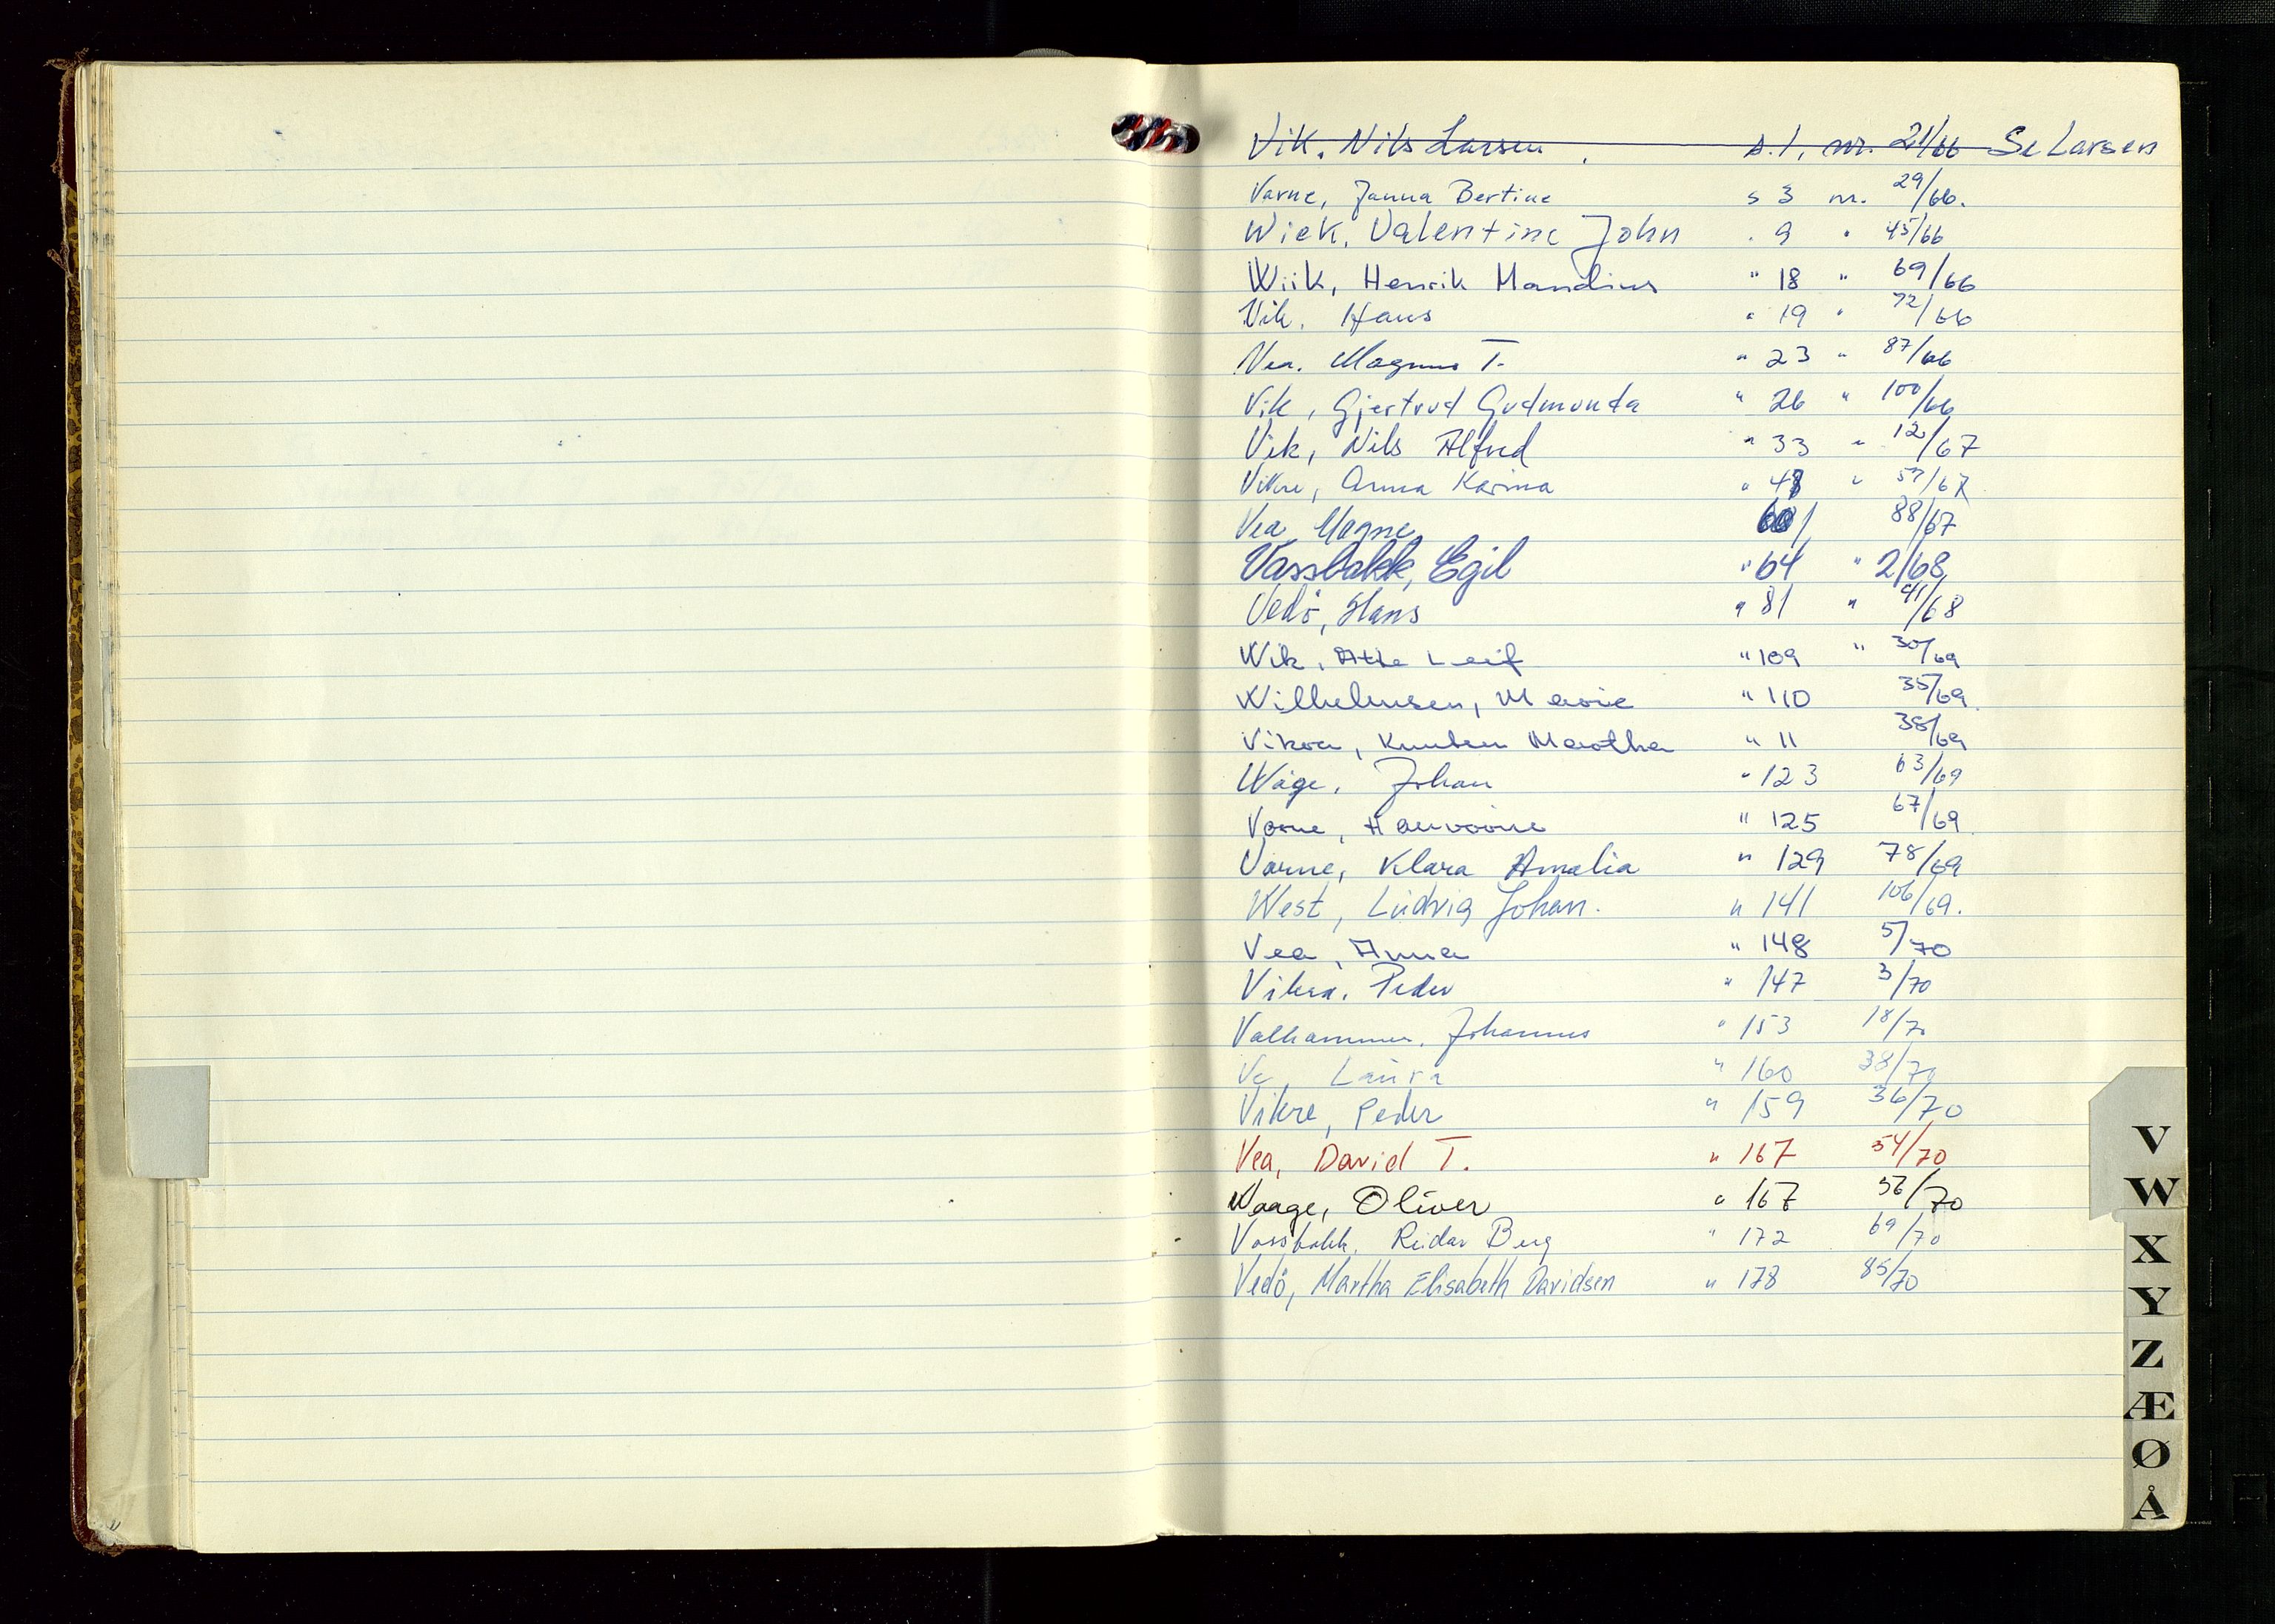 Vik, Nils Larsen . s. 1, nr. 21/66 Se Larsen
Varne, Janna Bertine s 3 nr. 29/66.
Wick, Valentine John . 9 " 45/66
Wiik, Henrik Mandius " 18 " 69/66
Vik, Hans " 19 " 72/66
Vea, Magnus T. " 23 " 87/66
Vik, Gjertrud Gudmunda " 26 " 100/66
Vik, Nils Alfred " 33 " 12/67
Vikre, Anna Karina " 48 " 57/67
Vea, Magne 88/67
Vassbakk, Egil " 64 " 2/68
Vedö, Hans " 81 " 41/68
Wik, Leif " 109 " 30/69
Wilhelmsen, Marie " 110 35/69.
Vikra, Martha " 11 38/69
Wåge, Johan " 123 63/69
Varne, " 125 67/69
Varne, Klara Amalia " 129 78/69
West, Ludvig Johan. " 141 106/69.
Vea, Anna " 148 5/70
Vikra, Peder " 147 3/70
Valhammer, Johannes " 153 18/70
Ve, Laura " 160 38/70
Vikre, Peder " 159 36/70
Vea, David T. " 167 54/70
Waage, Oliver " 167 56/70
Vassbakk, Reidar Berg " 172 69/70
Vedö, Martha Elisabeth Davidsen " 178 85/70
V
W
X
Y
Z
Æ
Ø
Å